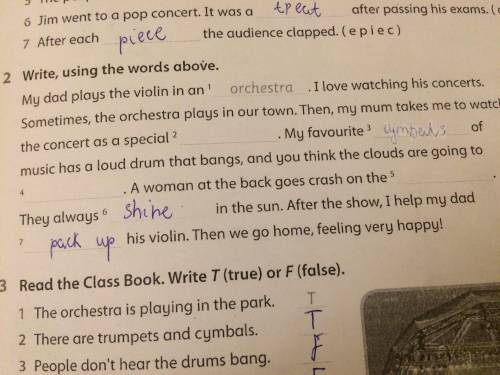 6 Jim went to a pop concert. It was a treat after passing his exams. (
7 After each piece the audience clapped. (e p i e c)
2 Write, using the words above.
My dad plays the violin in an ¹ orchestra . I love watching his concerts.
Sometimes, the orchestra plays in our town. Then, my mum takes me to watch
the concert as a special ² . My favourite ³ cymbals of
music has a loud drum that bangs, and you think the clouds are going to
⁴ . A woman at the back goes crash on the ⁵ .
They always ⁶ shine in the sun. After the show, I help my dad
⁷ pack up his violin. Then we go home, feeling very happy!
3 Read the Class Book. Write T (true) or F (false).
1 The orchestra is playing in the park. T
2 There are trumpets and cymbals. T
3 People don't hear the drums bang. F